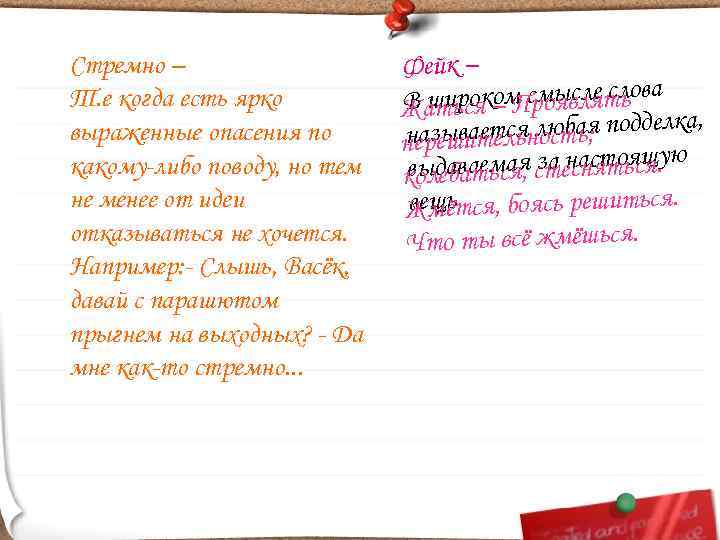 Стремно –
Т.е когда есть ярко
выраженные опасения по
какому-либо поводу, но тем
не менее от идеи
отказываться не хочется.
Например: - Слышь, Васёк,
давай с парашютом
прыгнем на выходных? - Да
мне как-то стремно...
Фейк –
В широком смысле слова
называется любая подделка,
выдаваемая за настоящую
вещь
Жаться – Проявлять
нерешительность,
колебаться, стесняться.
Жмётся, боясь решиться.
Что ты всё жмёшься.